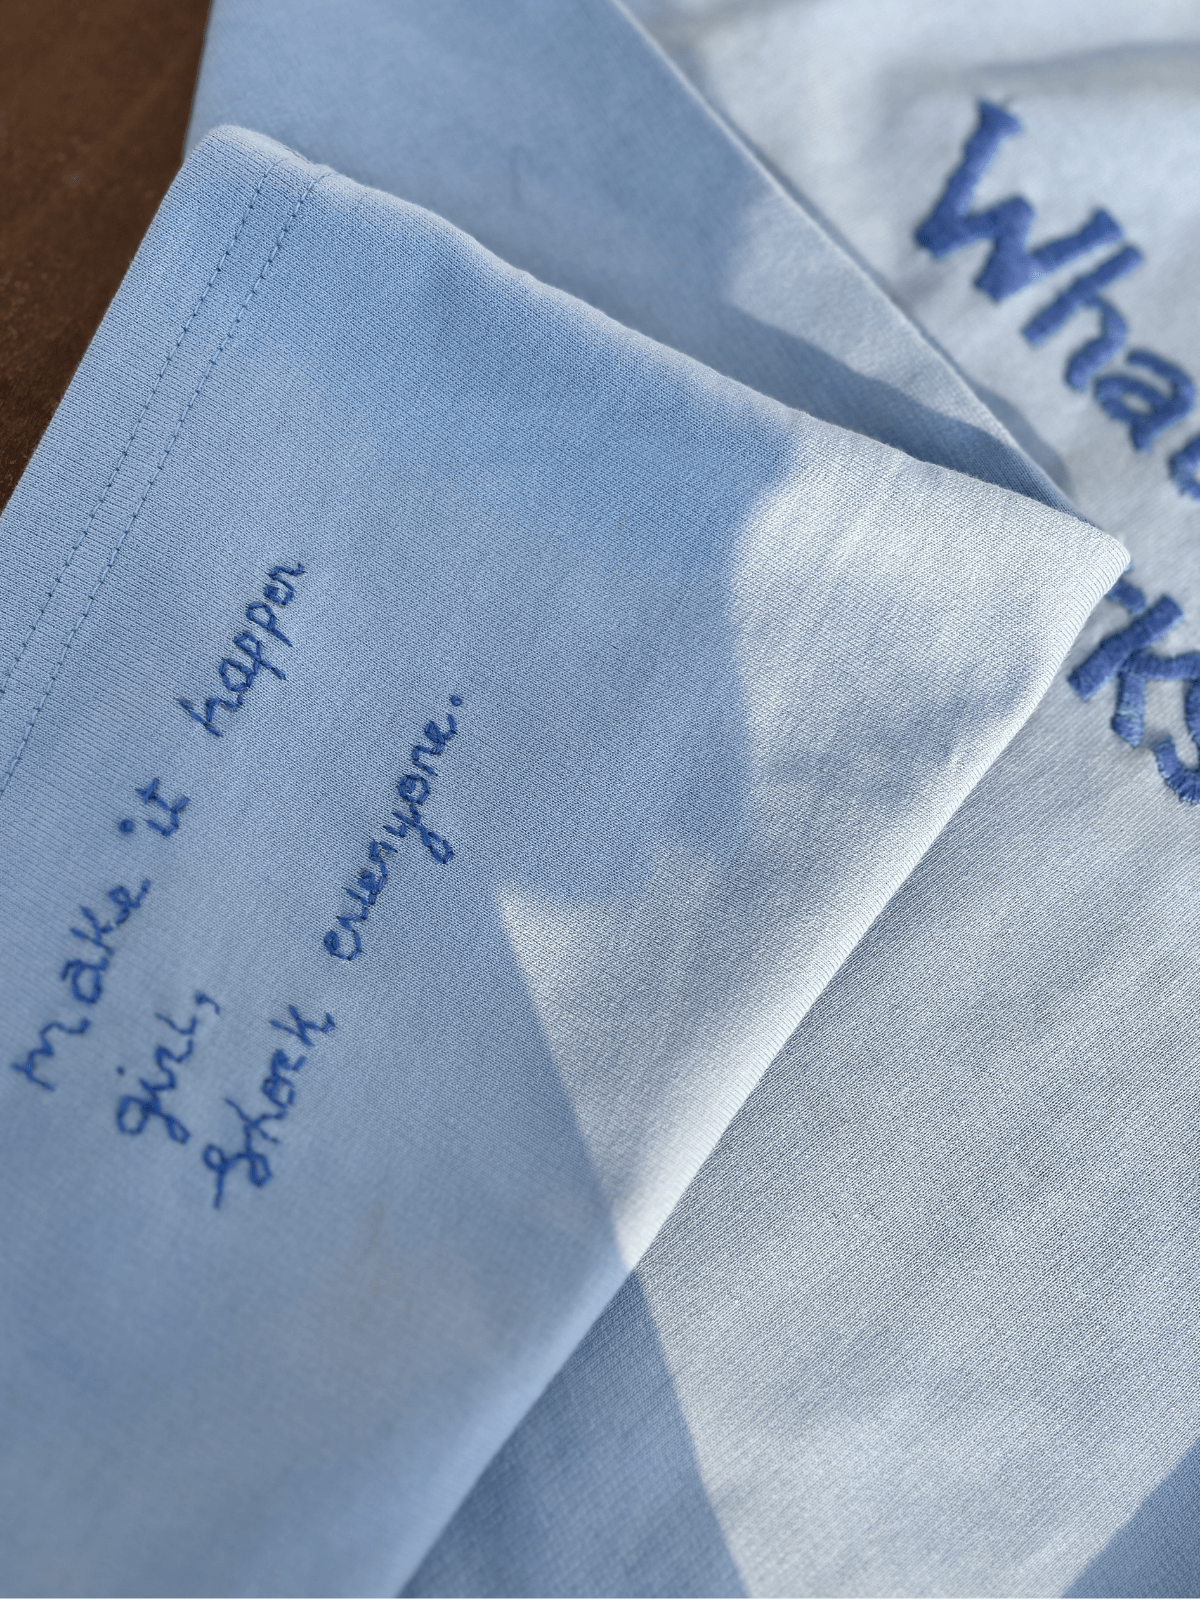 make it happen
girl,
Shock everyone.
Wha
rks